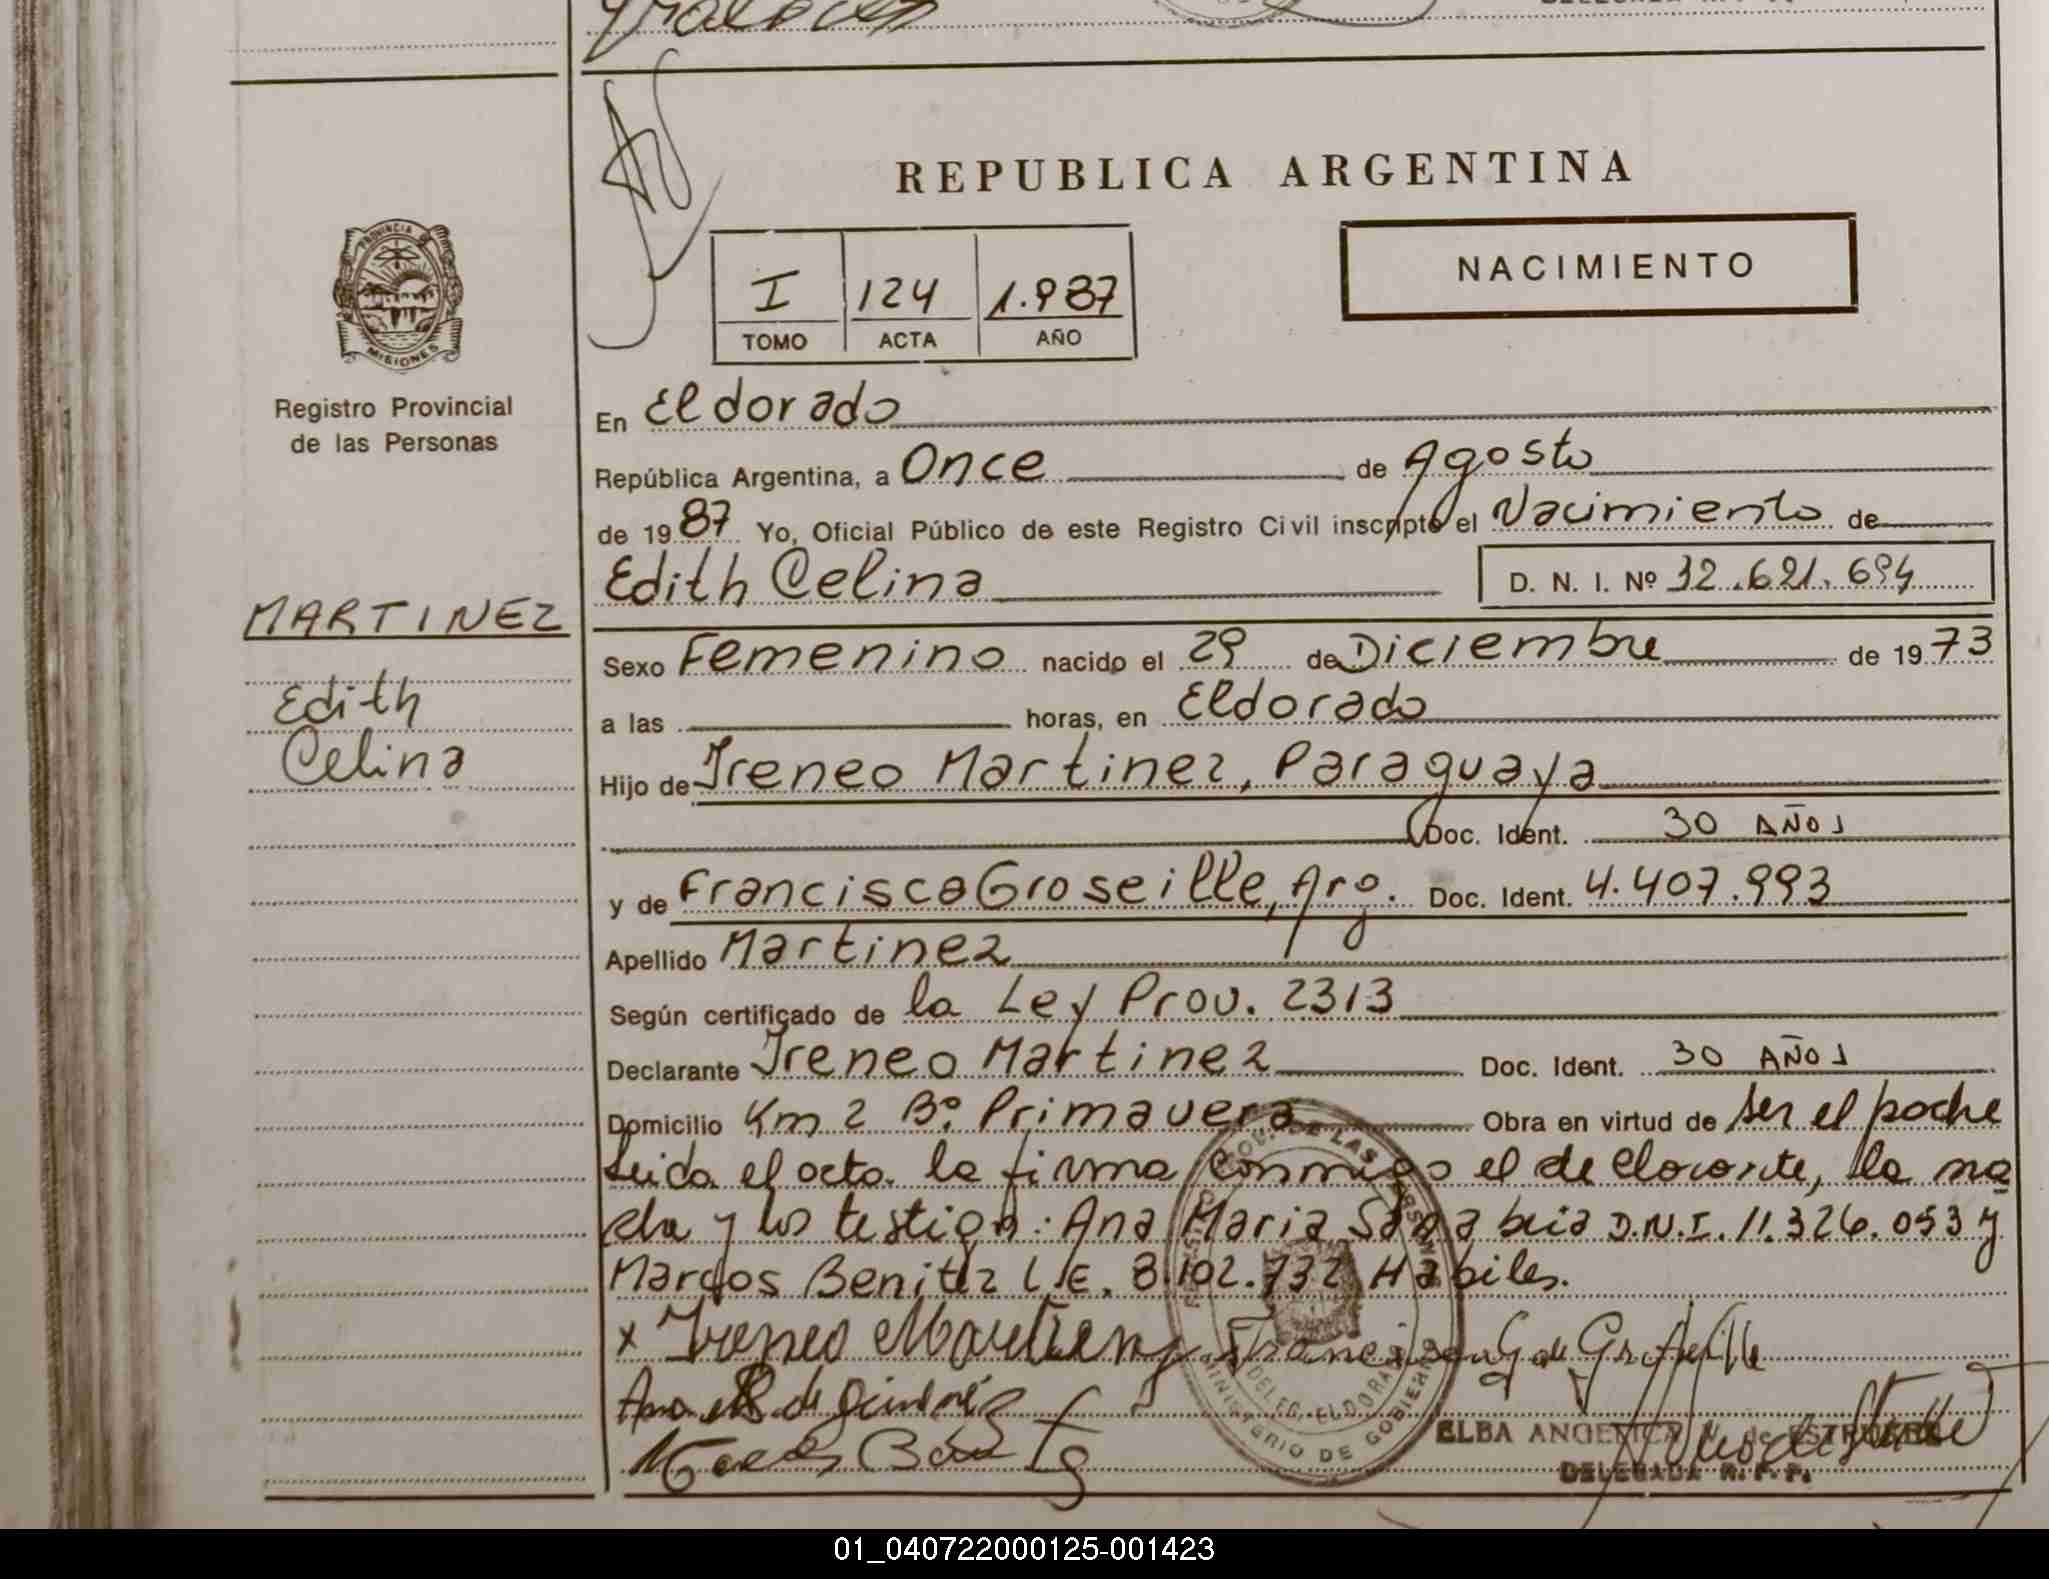 REPUBLICA ARGENTINA
NACIMIENTO
I 124 1.987
TOMO ACTA AÑO
PROVINCIA DE
MISIONES
Registro Provincial
de las Personas
MARTINEZ
Edith
Celina
En Eldorado
República Argentina, a Once de Agosto
de 1987 Yo, Oficial Público de este Registro Civil inscripto el Nacimiento de
Edith Celina D. N. I. Nº 32.621.694
Sexo Femenino nacido el 29 de Diciembre de 1973
a las horas, en Eldorado
Hijo de Ireneo Martinez, Paraguaya
Doc. Ident. 30 AÑOS
y de Francisca Groseille, Arg. Doc. Ident. 4.407.993
Apellido Martinez
Según certificado de la Ley Prov. 2313
Declarante Ireneo Martinez Doc. Ident. 30 AÑOS
Domicilio Km 2 Bº Primavera Obra en virtud de ser el padre
Leida el acta la firma conmigo el declarante, la ma
dre y los testigos: Ana Maria Sanabria D.N.I. 11.326.053 y
Marcos Benitez L.E. 8.102.732 Habiles.
x Ireneo Martinez
DELEG. ELDORADO
MINISTERIO DE GOBIERNO
ELBA ANGELICA V. de
DELEGADA R. P. P.
01_040722000125-001423